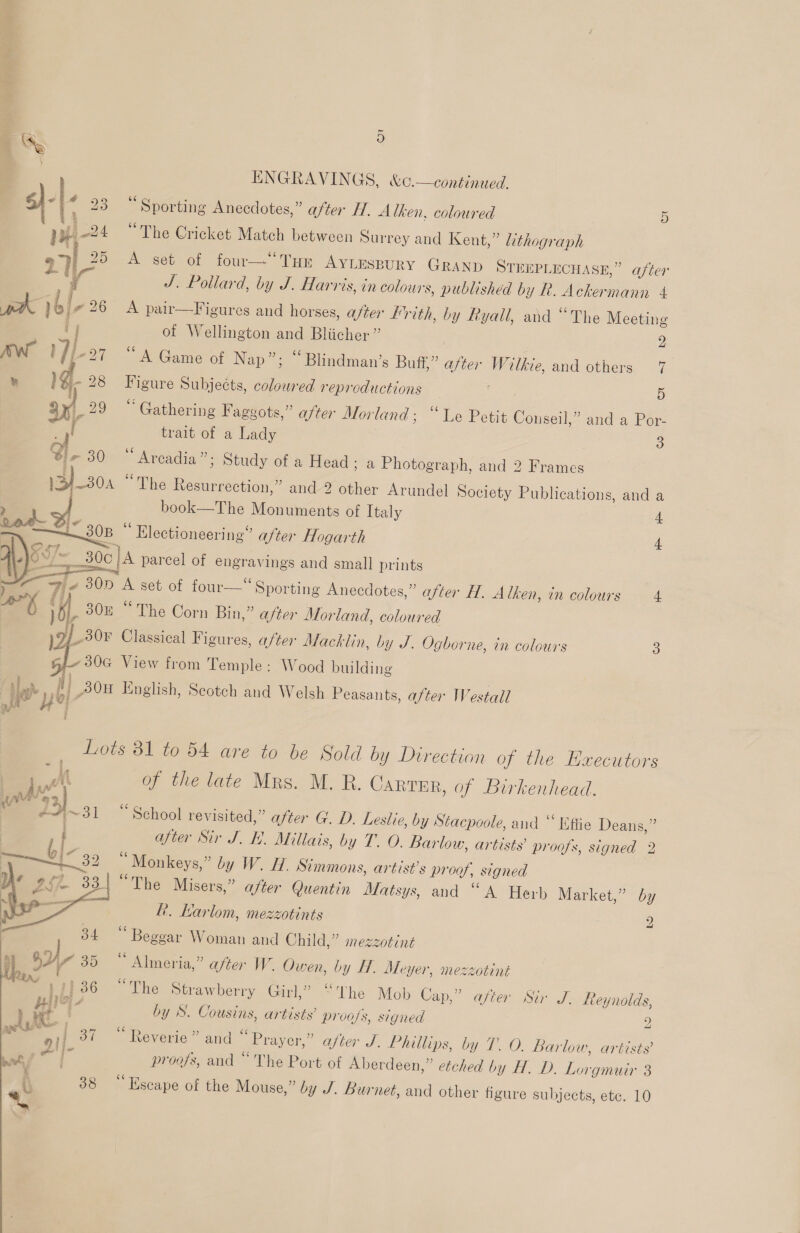 5
ENGRAVINGS, &c.—continued.
23 “Sporting Anecdotes,” after H. Alken, coloured 5
24 “The Cricket Match between Surrey and Kent,” lithograph
25 A set of four—“THE AYLESBURY GRAND STEEPLECHASE,” after
J. Pollard, by J. Harris, in colours, published by R. Ackermann 4
26 A pair—Figures and horses, after Frith, by Ryall, and “The Meeting
of Wellington and Blücher” 2
27 “A Game of Nap”; “Blindman’s Buff,” after Wilkie, and others 7
28 Figure Subjects, coloured reproductions 5
29 “Gathering Faggots,” after Morland; “Le Petit Conseil,” and a Por-
trait of a Lady 3
30 “Arcadia”; Study of a Head; a Photograph, and 2 Frames
30A “The Resurrection,” and 2 other Arundel Society Publications, and a
book—The Monuments of Italy 4
30B “Electioneering” after Hogarth 4
30C A parcel of engravings and small prints
30D A set of four—“Sporting Anecdotes,” after H. Alken, in colours 4
30E “The Corn Bin,” after Morland, coloured
30F Classical Figures, after Macklin, by J. Ogborne, in colours 3
30G View from Temple: Wood building
30H English, Scotch and Welsh Peasants, after Westall
Lots 31 to 54 are to be Sold by Direction of the Executors
of the late Mrs. M. R. CARTER, of Birkenhead.
31 “School revisited,” after G. D. Leslie, by Stacpoole, and “Effie Deans,”
after Sir J. E. Millais, by T. O. Barlow, artists’ proofs, signed 2
32 “Monkeys,” by W. H. Simmons, artist’s proof, signed
33 “The Misers,” after Quentin Matsys, and “A Herb Market,” by
R. Earlom, mezzotints 2
34 “Beggar Woman and Child,” mezzotint
35 “Almeria,” after W. Owen, by H. Meyer, mezzotint
36 “The Strawberry Girl,” “The Mob Cap,” after Sir J. Reynolds,
by S. Cousins, artists’ proofs, signed 2
37 “Reverie” and “Prayer,” after J. Phillips, by T. O. Barlow, artists’
proofs, and “The Port of Aberdeen,” etched by H. D. Lorgmuir 3
38 “Escape of the Mouse,” by J. Burnet, and other figure subjects, etc. 10